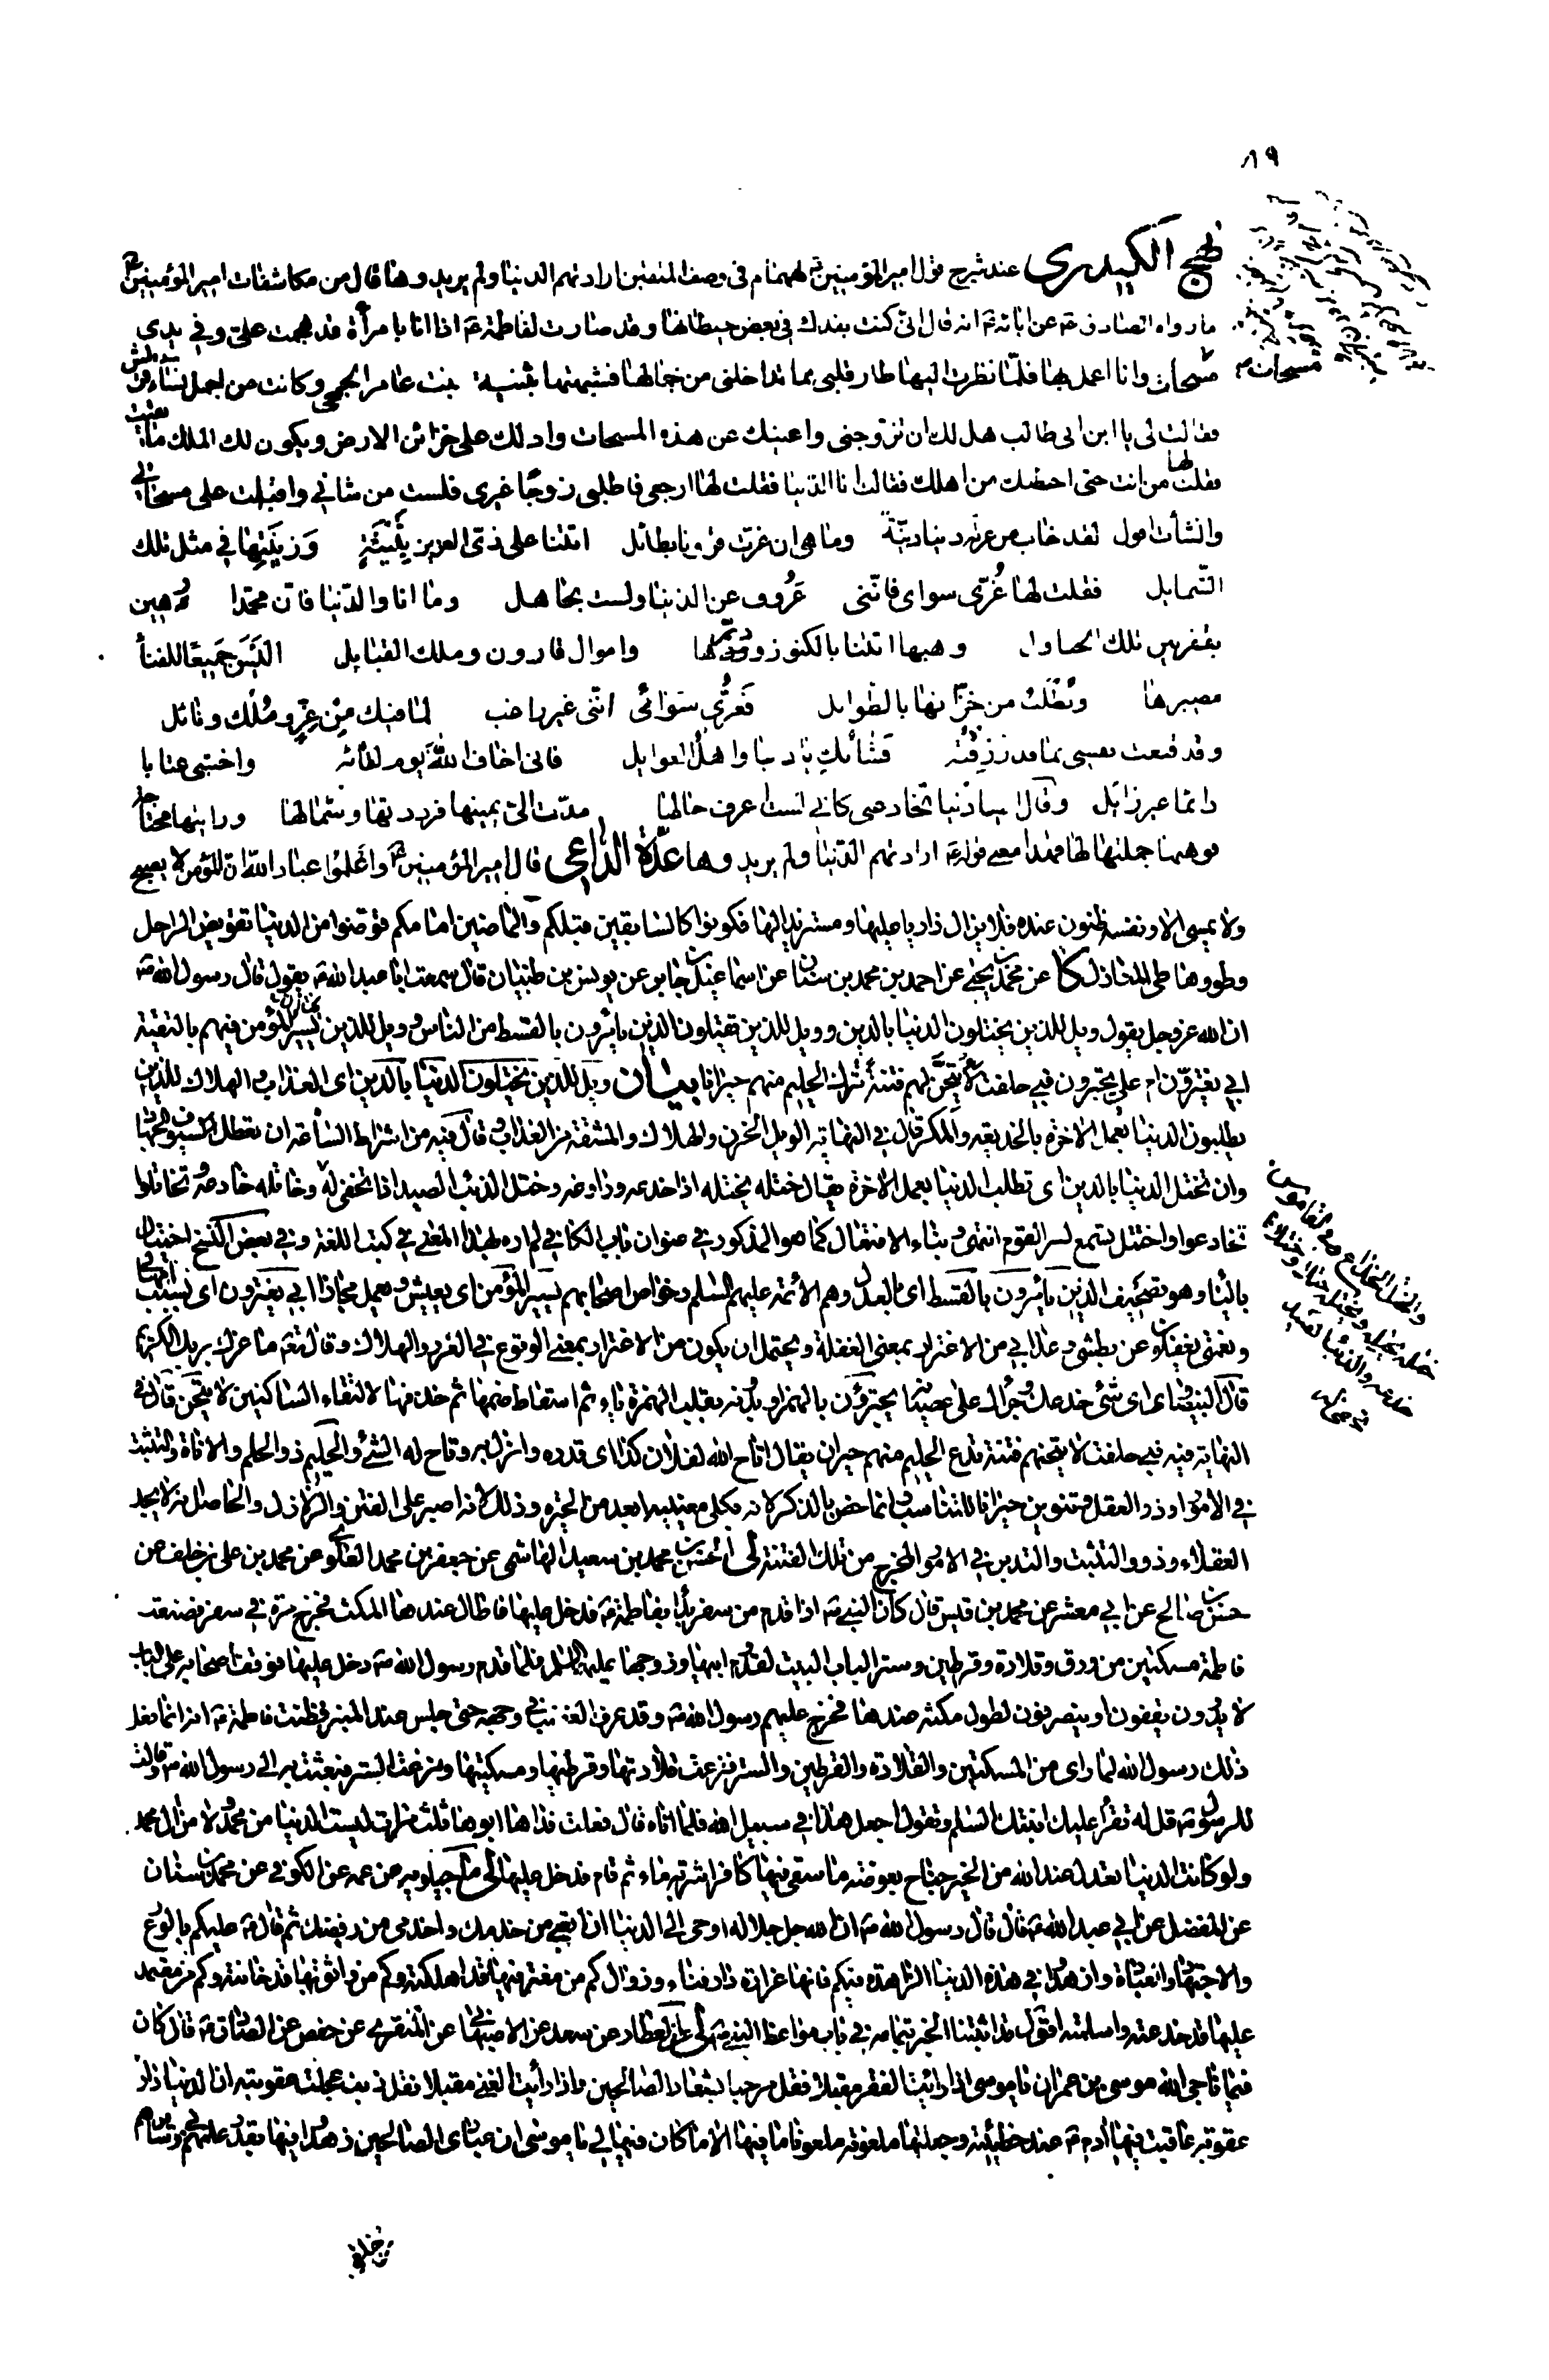 ٨٩
نهج الكيدري عند شرح قول امير المؤمنين ع لهمام في وصف المتقين ارادتهم الدنيا ولم يريدوها قال من مكاشفات امير المؤمنين ع
ما رواه الصادق ع عن ابائه ع انه قال انى كنت بفدك في بعض حيطانها وقد صارت لفاطمة ع اذا انا بامرأة قد هجمت على وفي يدى
مسحات وانا اعمل بها فلما نظرت اليها طار قلبى مما تداخلنى من جمالها فشبهتها بثنية بنت عامر الجمحى وكانت من اجمل نساء قريش
فقالت لى يا ابن ابى طالب هل لك ان تزوجنى واغنيك عن هذه المسحات وادلك على خزائن الارض ويكون لك الملك ما بقيت
فقلت لها من انت حتى اخطبك من اهلك فقالت انا الدنيا فقلت لها ارجعى فاطلبى زوجا غيرى فلست من شانى واقبلت على مسحاتى
وانشات اقول لقد خاب من غرته دنيا دنية وما هى ان غرت قرونا بطائل اتتنا على زى العزيز بثنية وَزينَتِها في مثل تلك
الشمايل فقلت لها غُرّى سواى فانّنى عَزُوف عن الدنيا ولست بجاهل وما انا والدنيا فانّ محمّدا رهين
بقفر بين تلك الجنادل وهبها اتتنا بالكنوز ودرّها واموال قارون وملك القبايل اليس جَميعًا للفنا
مصيرها وتطلب من خزّانها بالطوايل فغُرّي سوائى انّنى غير راغب لما فيك من عِزّ ومُلك ونائل
وقد قنعت نفسى بما قد رزقته فشأنكِ يا دنيا واهل الغوايل فانى اخاف اللّه يوم لقائه واخشى عتابا
دائما غير زائل وقال ايضا دنيا تخادعنى كانى لست اعرف حالها مدّت الىّ يمينها فرددتها وشمالها ورايتها محتاجة
فوهبت جملتها لها فهذا معنى قوله ع ارادتهم الدنيا ولم يريدوها عدّة الداعى قال امير المؤمنين ع واعلموا عباد اللّه ان المؤمن لا يصبح
ولا يمسى الا ونفسه ظنون عنده فلا يزال زاريا عليها ومستزيدا لها فكونوا كالسابقين قبلكم والماضين امامكم قوضوا من الدنيا تقويض الراحل
وطووها طى المنازل كا عن محمد بن يحيى عن احمد بن محمد عن بن سنان عن اسماعيل بن جابر عن يونس بن ظبيان قال سمعت ابا عبد اللّه ع يقول قال رسول اللّه ص
ان اللّه عز وجل يقول ويل للذين يختلون الدنيا بالدين وويل للذين يقتلون الذين يأمرون بالقسط من الناس وويل للذين يسير المؤمن فيهم بالتقية
ابي يغترون ام على يجترون فبى حلفت لاتيحن لهم فتنة تترك الحليم منهم حيرانا بيان ويل للذين يختلون الدنيا بالدين اى العذاب والهلاك للذين
يطلبون الدنيا بعمل الاخرة بالخديعة والمكر قال في النهاية الويل الحزن والهلاك والمشقة من العذاب وقال فيه من اشراط الساعة ان تعطل السيوف من الجهاد
وان تختل الدنيا بالدين اى تطلب الدنيا بعمل الاخرة يقال ختله يختله اذا خدعه وراوغه وختل الذئب الصيد اذا تخفى له وخاتله خادعه وتخاتلوا
تخادعوا واختتل يتسمع لسر القوم انتهى وبناء الافتعال كما هو المذكور في عنوان باب الكافى لم اره بهذا المعنى في كتب اللغة وفي بعض النسخ اختيال
بالياء وهو تصحيف الذين يأمرون بالقسط اى بالعدل وهم الائمة عليهم السلم وخواص اصحابهم يسير المؤمن اى يعيش ويعمل مجازا ابي يغترون اى بسبب امهالى
ونعمتى يغفلون عن بطشى وعذابى من الاغترار بمعنى الغفلة ويحتمل ان يكون من الاغترار بمعنى الوقوع في الغرر والهلاك وقال تع ما غرك بربك الكريم
قال البيضاوى اى شئ خدعك وجراك على عصيانه يجترؤن بالهمز او بدونه بقلب الهمزة ياء ثم اسقاط ضمها ثم حذفها لالتقاء الساكنين لاتيحن قال في
النهاية فيه فبى حلفت لاتيحنهم فتنة تدع الحليم منهم حيران يقال اتاح اللّه لفلان كذا اى قدره وانزل به وتاح له الشئ والحليم ذو الحلم والاناة والتثبت
في الامور او ذو العقل وتنوين حيرانا للتناسب وانما خص بالذكر لانه بكلى معنييه ابعد من الحيرة وذلك لانه اصبر على الفتن والزلازل والحاصل انه لا يجد
العقلاء وذوو التثبت والتدبر في الامور المخرج من تلك الفتنة لى الحسن بن محمد بن سعيد الهاشمى عن جعفر بن محمد العلوى عن محمد بن على بن خلف عن
حسن بن صالح عن ابي معشر عن محمد بن قيس قال كان النبى ص اذا قدم من سفر بدا بفاطمة ع فدخل عليها فاطال عندها المكث فخرج مرة في سفر فصنعت
فاطمة مسكتين من ورق وقلادة وقرطين وسترا لباب البيت لقدوم ابيها وزوجها عليهما السلم فلما قدم رسول اللّه ص دخل عليها فوقف اصحابه على الباب
لا يدرون يقفون او ينصرفون لطول مكثه عندها فخرج عليهم رسول اللّه ص وقد عرف الغضب في وجهه حتى جلس عند المنبر فظنت فاطمة ع انه انما فعل
ذلك رسول اللّه لما راى من المسكتين والقلادة والقرطين والستر فنزعت قلادتها وقرطيها ومسكتيها ونزعت الستر فبعثت به الى رسول اللّه ص وقالت
للرسول قل له تقرأ عليك ابنتك السلم وتقول اجعل هذا في سبيل اللّه فلما اتاه قال فعلت فداها ابوها ثلث مرات ليست الدنيا من محمد ولا من ال محمد
ولو كانت الدنيا تعدل عند اللّه من الخير جناح بعوضة ما سقى فيها كافرا شربة ماء ثم قام فدخل عليها لى ماجيلويه عن عمه عن الكوفى عن محمد بن سنان
عن المفضل عن ابي عبد اللّه ع قال قال رسول اللّه ص ان اللّه جل جلاله اوحى الى الدنيا ان اتعبى من خدمك واخدمى من رفضك ثم قال ص عليكم بالورع
والاجتهاد والعبادة وازهدوا في هذه الدنيا الزاهدة فيكم فانها غرارة دار فناء وزوال كم من مغتر فيها قد اهلكته وكم من واثق بها قد خانته وكم من معتمد
عليها قد خدعته واسلمته اقول قد اثبتنا الخبر بتمامه في باب مواعظ النبى ص لى العطار عن سعد عن الاصبهانى عن المنقرى عن حفص عن الصادق ع قال كان
فيما ناجى اللّه موسى بن عمران يا موسى اذا رايت الفقر مقبلا فقل مرحبا بشعار الصالحين واذا رأيت الغنى مقبلا فقل ذنب عجلت عقوبته ان الدنيا دار
عقوبة عاقبت فيها آدم ع عند خطيئته وجعلتها ملعونة ملعونا ما فيها الا ما كان فيها لى يا موسى ان عبادى الصالحين زهدوا فيها بقدر علمهم بى وسايرهم